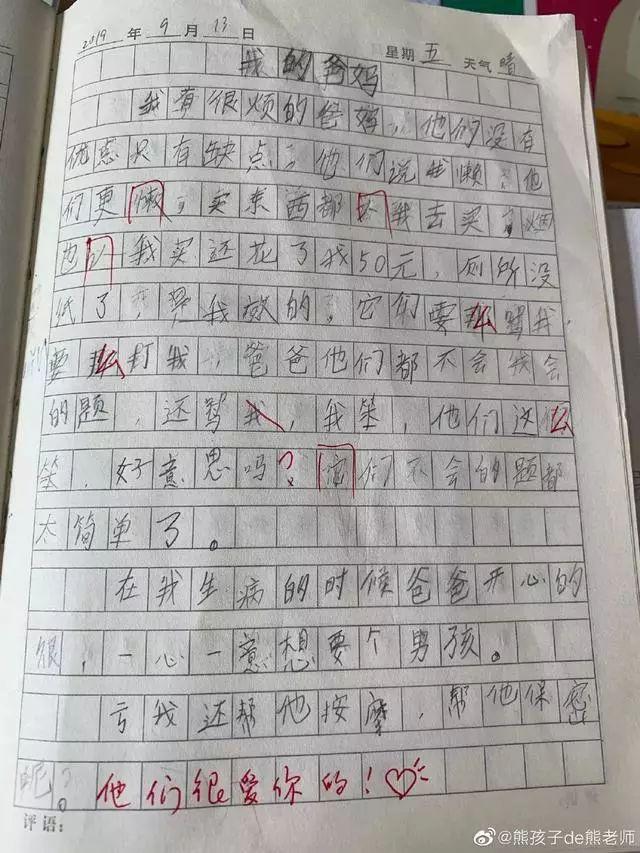 2019年9月13日 星期五 天气晴
我的爸妈
我有很烦的爸妈,他们没有
优点只有缺点,他们说我懒,他
们更懒,买东西都让我去买,烟
也让我买还花了我50元,厕所没
纸了,是我放的,它们要么骂我,
要么打我,爸爸他们都不会我会
的题,还骂我,我笨,他们这么
笨,好意思吗?它们不会的题都
太简单了。
在我生病的时候爸爸开心的
很,一心一意想要个男孩。
亏我还帮他按摩,帮他保密
呢?。他们很爱你的!
评语:
@熊孩子de熊老师